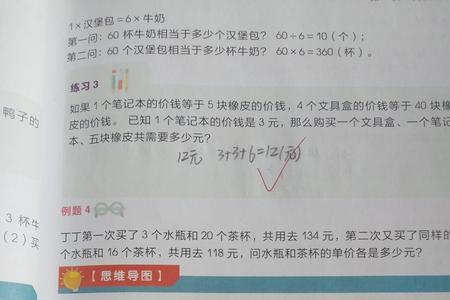 1×汉堡包=6×牛奶
第一问：60 杯牛奶相当于多少个汉堡包？ 60÷6=10（个）；
第二问：60 个汉堡包相当于多少杯牛奶？ 60×6=360（杯）。
练习 3
鸭子的
如果 1 个笔记本的价钱等于 5 块橡皮的价钱，4 个文具盒的价钱等于 40 块橡
皮的价钱。 已知 1 个笔记本的价钱是 3 元，那么购买一个文具盒、一个笔记
本、五块橡皮共需要多少元？
12元 3+3+6=12(元)
例题 4
3 杯牛
（2）买
丁丁第一次买了 3 个水瓶和 20 个茶杯，共用去 134 元，第二次又买了同样的
个水瓶和 16 个茶杯，共用去 118 元，问水瓶和茶杯的单价各是多少元？
【思维导图】